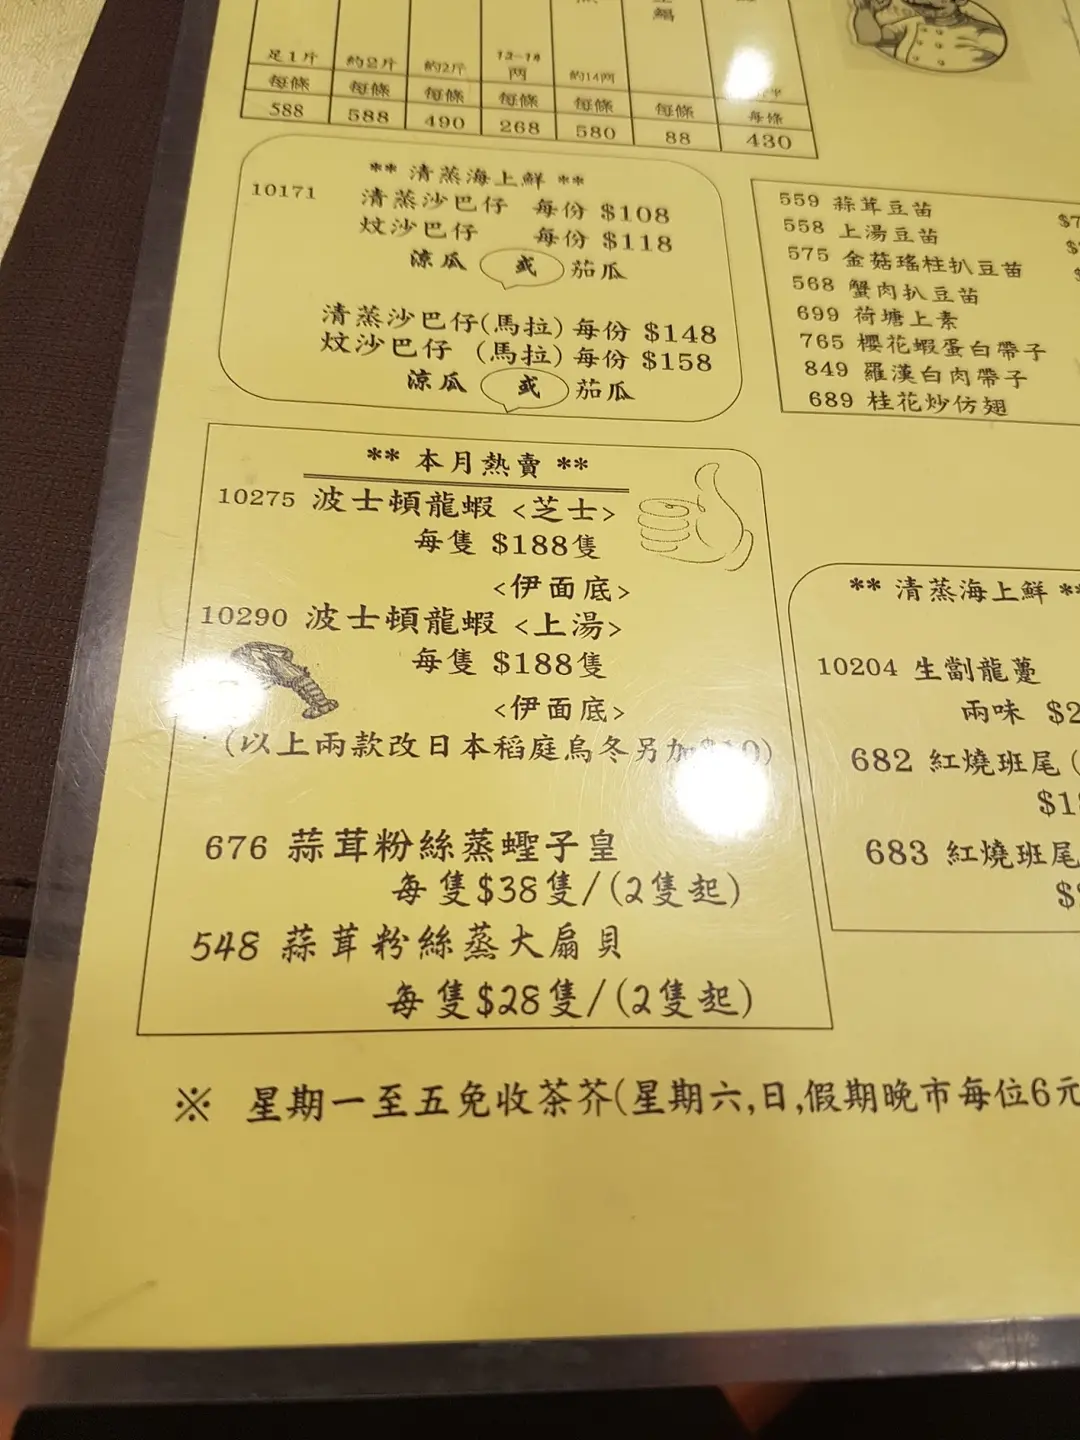 足1斤 約2斤 約2斤 12-14兩 約14兩
每條 每條 每條 每條 每條 每條 每條
588 588 490 268 580 88 430
** 清蒸海上鮮 **
10171 清蒸沙巴仔 每份 $108
炆沙巴仔 每份 $118
涼瓜 或 茄瓜
清蒸沙巴仔(馬拉) 每份 $148
炆沙巴仔 (馬拉) 每份 $158
涼瓜 或 茄瓜
559 蒜茸豆苗
558 上湯豆苗
575 金菇瑤柱扒豆苗
568 蟹肉扒豆苗
699 荷塘上素
765 櫻花蝦蛋白帶子
849 羅漢白肉帶子
689 桂花炒仿翅
** 本月熱賣 **
10275 波士頓龍蝦 <芝士>
每隻 $188隻
<伊面底>
10290 波士頓龍蝦 <上湯>
每隻 $188隻
<伊面底>
(以上兩款改日本稻庭烏冬另加$10)
676 蒜茸粉絲蒸蟶子皇
每隻$38隻/(2隻起)
548 蒜茸粉絲蒸大扇貝
每隻$28隻/(2隻起)
** 清蒸海上鮮 **
10204 生劏龍躉
兩味 $2
682 紅燒班尾(
$1
683 紅燒班尾
$
※ 星期一至五免收茶芥(星期六,日,假期晚市每位6元